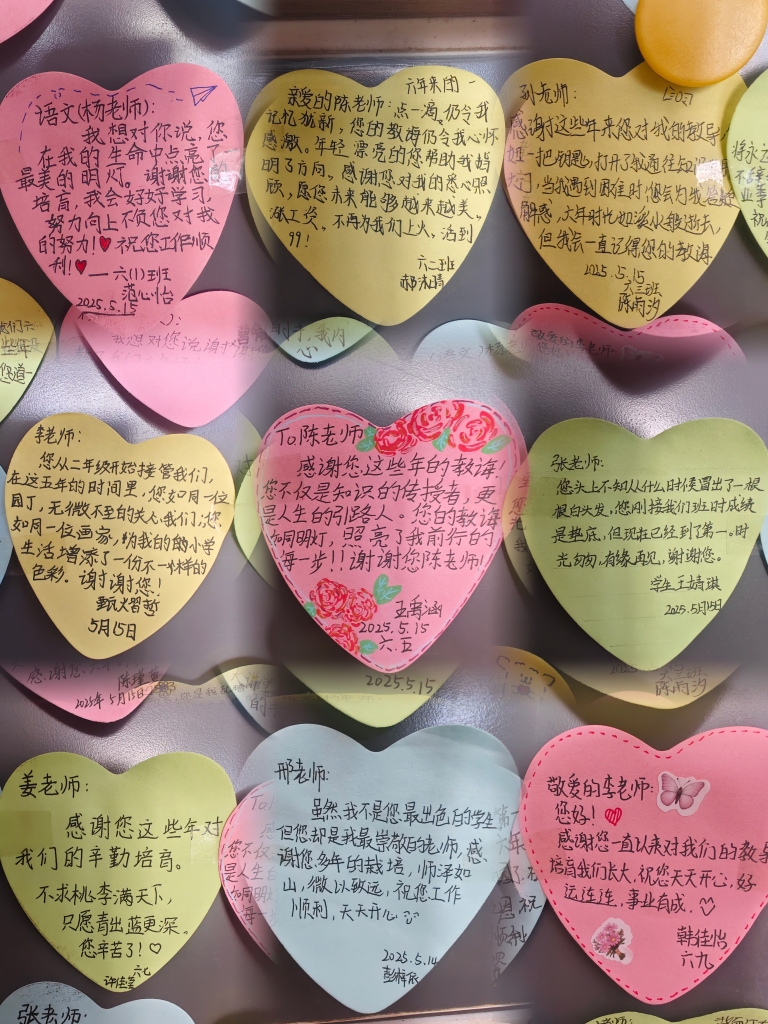 语文(杨老师):
我想对你说,您
在我的生命中点亮了
最美的明灯。谢谢您的
培育,我会好好学习,
努力向上不负您对我
的努力!❤祝您工作顺
利!❤ 一六(1)班
范心怡
2025.5.15
六年来的一
亲爱的陈老师:点一滴,仍令我
记忆犹新,您的教诲仍令我心怀
感激。年轻漂亮的您帮助我指
明了方向。感谢您对我的悉心照
顾,愿您未来能够越来越美。
涨工资。不再为我们上火、活到
99!
六二班
刘老师:
感谢这些年来您对我的教导
一把钥匙,打开了我通往知识
,当我遇到困难时,您会为我
解惑,六年时光如溪水般逝去,
但我会一直记得您的教诲
2025.5.15
六三班
陈雨汐
李老师:
您从二年级开始接管我们,
在这五年的时间里,您如同一位
园丁,无微不至的关心我们;您
如同一位画家,为我的的小学
生活增添了一份不一样的
色彩。谢谢您!
5月15日
To陈老师
感谢您这些年的教诲!
您不仅是知识的传授者,更
是人生的引路人。您的教诲
如同明灯,照亮了我前行的
每一步!!谢谢您陈老师!
王禹涵
2025.5.15
六.五
张老师:
您头上不知从什么时候冒出了一根
根白头发,您刚接我们班时成绩
是垫底,但现在已经到了第一。时
光匆匆,有缘再见,谢谢您。
学生王婧琪
2025.5月15日
我想对您说谢谢
敬爱的李老师:
陈瑾萱
2025年5月15日
2025.5.15
六三班
陈雨汐
姜老师:
感谢您这些年对
我们的辛勤培育。
不求桃李满天下,
只愿青出蓝更深。
您辛苦了!♡
六七
许佳莹
邢老师:
虽然我不是您最出色的学生
但您却是我最崇敬的老师,感
谢您多年的栽培,师泽如
山,微以致远,祝您工作
顺利,天天开心
2025.5.14
敬爱的李老师:
您好!
感谢您一直以来对我们的教导
培育我们长大,祝您天天开心,好
运连连,事业有成。
韩佳怡
六九
张老师: